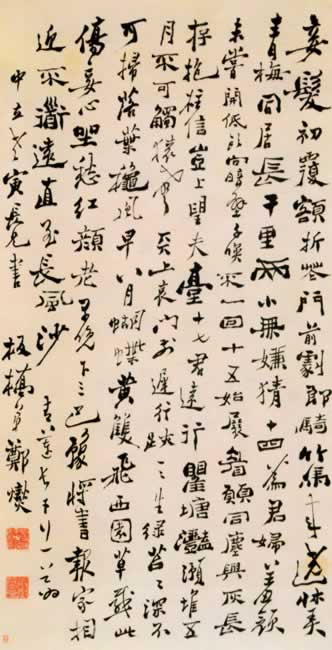 妾髮初覆額折花門前劇郎騎竹馬來遶床弄
青梅同居長干里兩小無嫌猜十四為君婦羞顏
未嘗開低頭向暗壁千喚不一回十五始展眉願同塵與灰長
存抱柱信豈上望夫臺十六君遠行瞿塘灩澦堆五
月不可觸猿聲天上哀門前遲行跡一一生綠苔苔深不
可掃落葉秋風早八月蝴蝶黃雙飛西園草感此
傷妾心坐愁紅顏老早晚下三巴豫將書報家相
迎不道遠直至長風沙 青蓮長干行一首為
中立老寅長兄書 板橋弟鄭燮